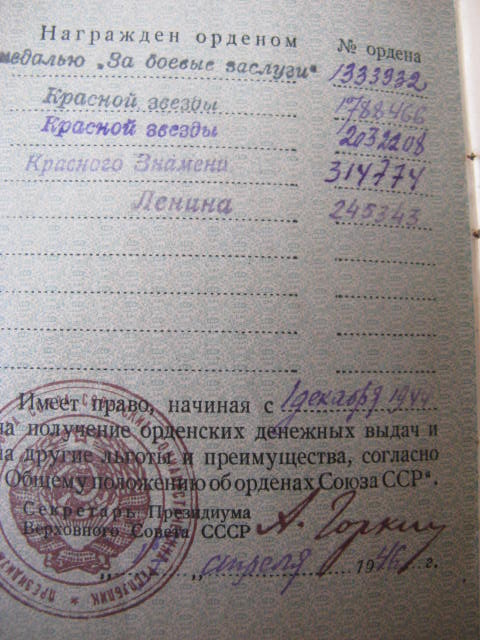 Награжден орденом № ордена
медалью „За боевые заслуги“ 1333932
Красной звезды 1788466
Красной звезды 2032208
Красного Знамени 314774
Ленина 245343
Имеет право, начиная с 1 декабря 1944
на получение орденских денежных выдач и
на другие льготы и преимущества, согласно
Общему положению об орденах Союза ССР“.
Секретарь Президиума
Верховного Совета СССР А. Горкин
апреля 1946 г.